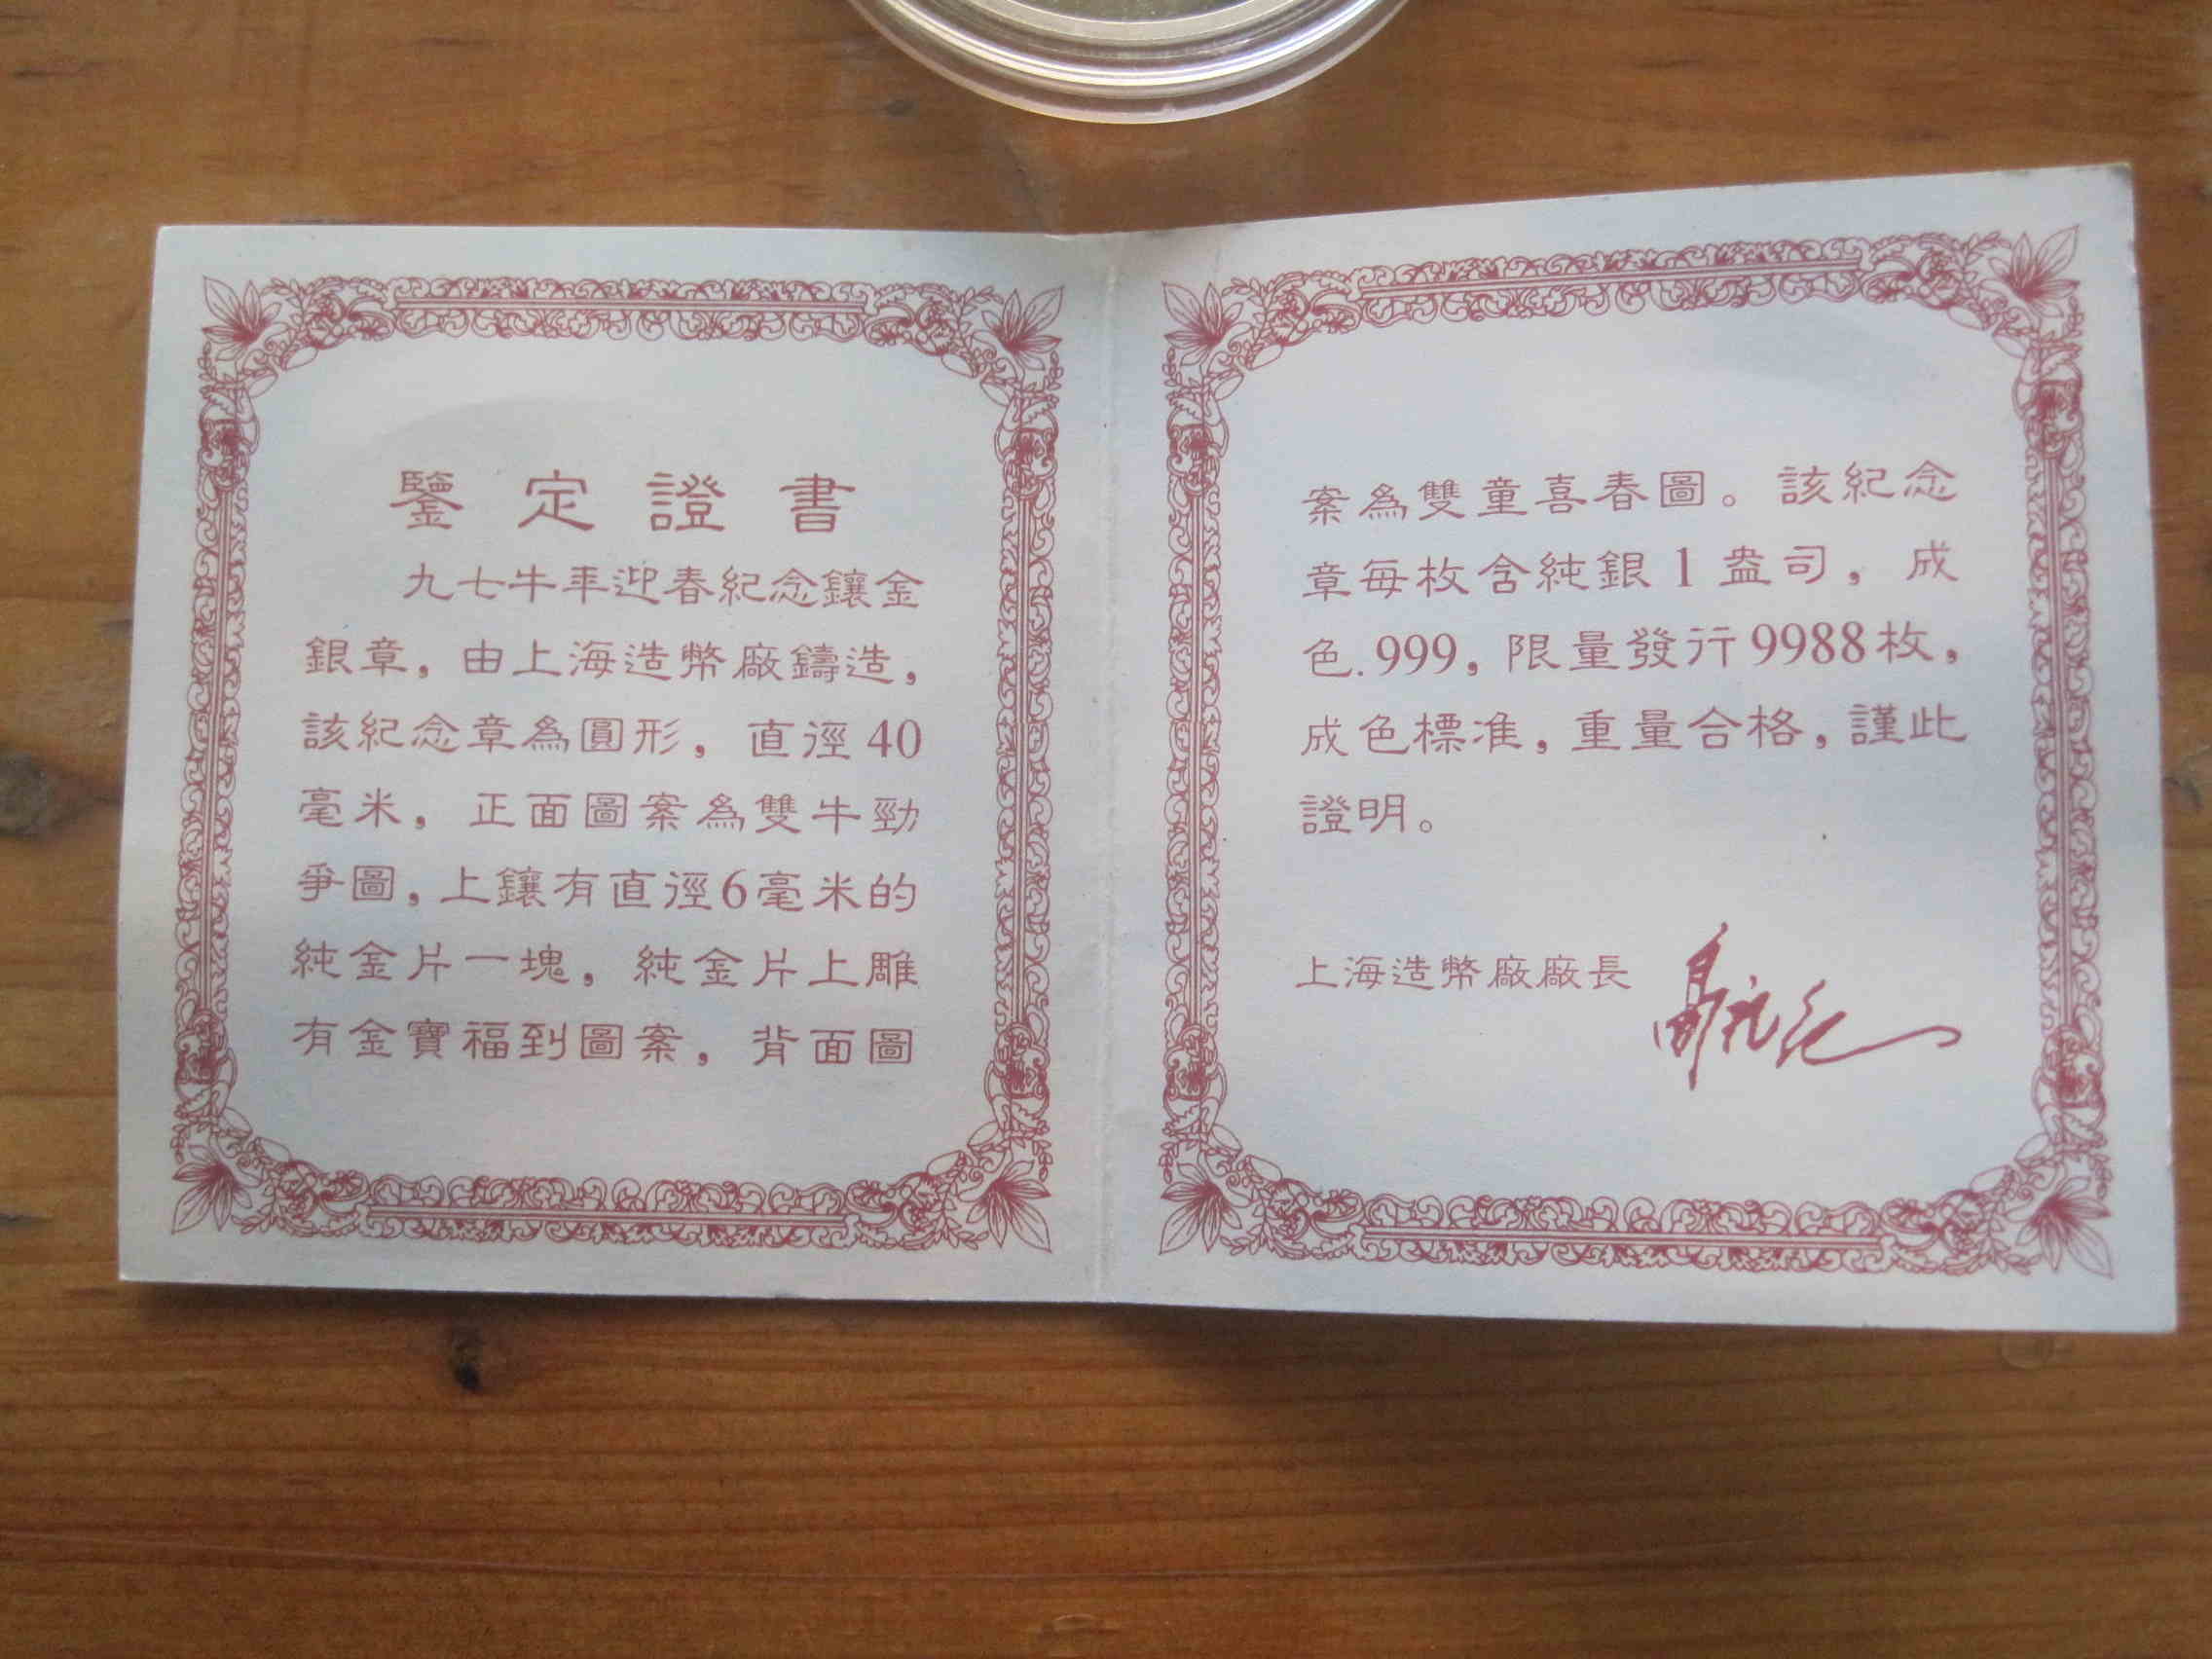 鑒定證書
九七牛年迎春紀念鑲金
銀章，由上海造幣廠鑄造，
該紀念章為圓形，直徑40
毫米，正面圖案為雙牛勁
爭圖，上鑲有直徑6毫米的
純金片一塊，純金片上雕
有金寶福到圖案，背面圖
案為雙童喜春圖。該紀念
章每枚含純銀1盎司，成
色.999，限量發行9988枚，
成色標准，重量合格，謹此
證明。
上海造幣廠廠長